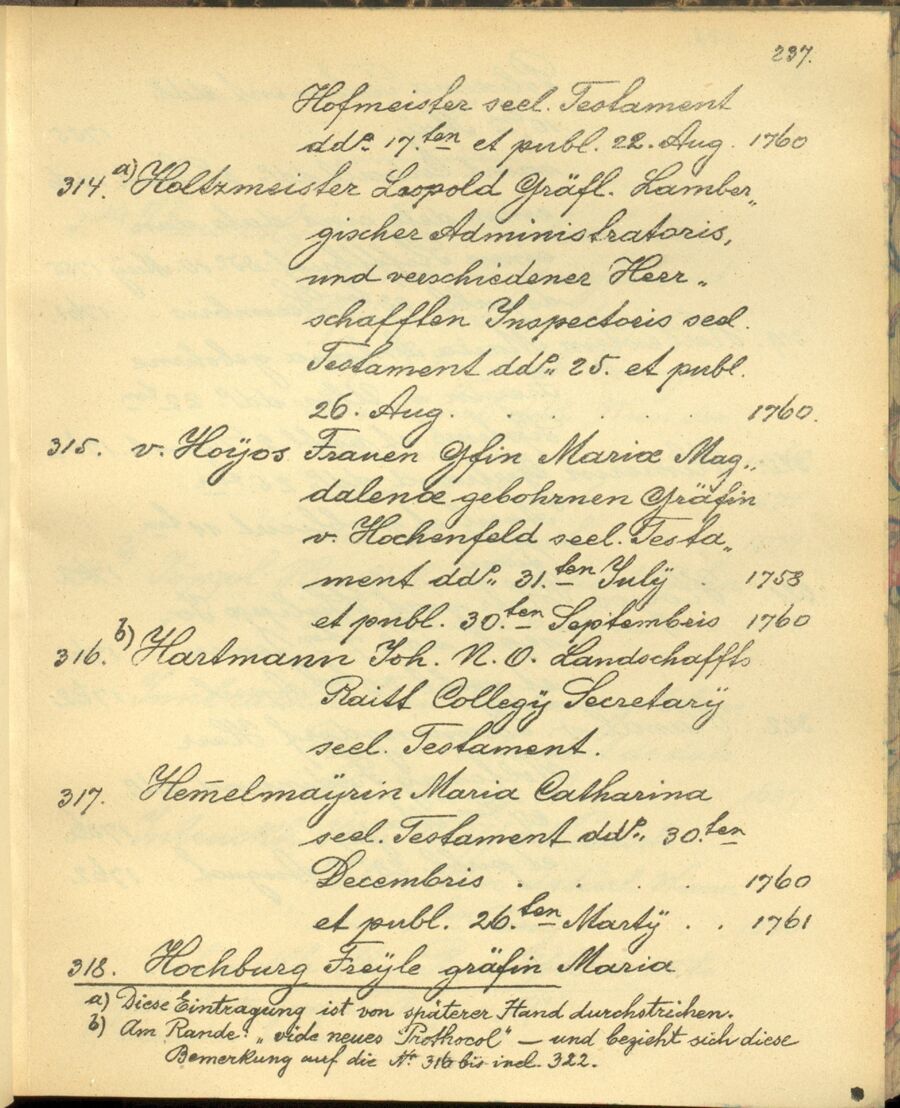 237.
Hofmeister seel. Testament
ddº 17.ten et publ. 22. Aug. 1760
314. a) Holtzmeister Leopold Gräfl. Lamber„
gischer Administratoris,
und verschiedener Herr„
schafften Inspectoris seel.
Testament ddº„ 25. et publ.
26. Aug. . . . . 1760.
315. v. Hoÿos Frauen Gfin Mariæ Mag„
dalenæ gebohrnen Gräfin
v. Hochenfeld seel. Testa„
ment ddº„ 31.ten Julÿ . 1758
et publ. 30.ten Septembris 1760
316. b) Hartmann Joh. N. O. Landschaffts
Raitt Collegÿ Secretarÿ
seel. Testament.
317. Hem̅elmaÿrin Maria Catharina
seel. Testament ddº„ 30.ten
Decembris . . . 1760
et publ. 26.ten Martÿ . . 1761
318. Hochburg Freÿle gräfin Maria
a) Diese Eintragung ist von späterer Hand durchstrichen.
b) Am Rande: „vide neues Prothocol" – und bezieht sich diese
Bemerkung auf die Nº 316 bis incl. 322.